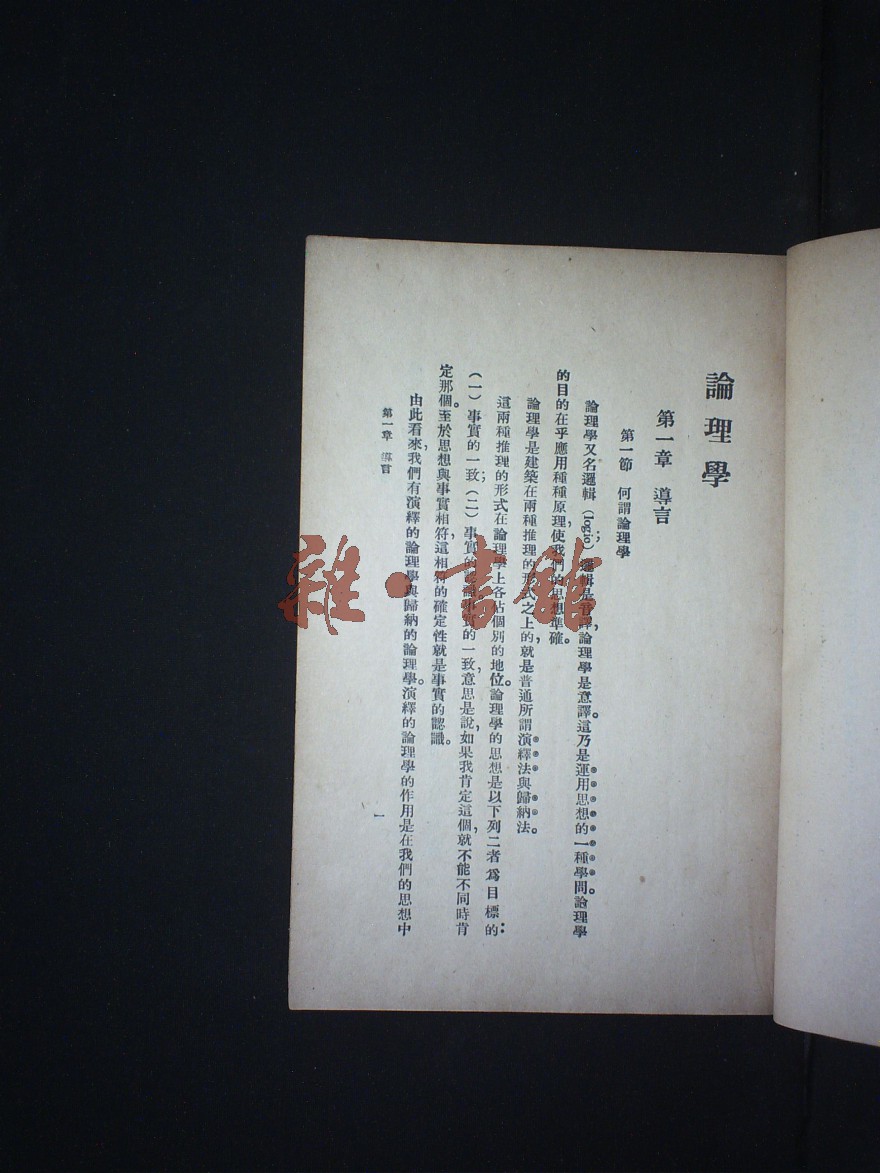 論理學
第一章 導言
第一節 何謂論理學
論理學又名邏輯(logic);邏輯是音譯,論理學是意譯。這乃是運用思想的一種學問。論理學
的目的在乎應用種種原理,使我們的思想準確。
論理學是建築在兩種推理的形式之上的,就是普通所謂演繹法與歸納法。
這兩種推理的形式在論理學上各佔個別的地位。論理學的思想是以下列二者爲目標的:
(一)事實的一致;(二)事實的認識。事實的一致,意思是說,如果我肯定這個,就不能不同時肯
定那個。至於思想與事實相符,這相符的確定性就是事實的認識。
由此看來,我們有演繹的論理學與歸納的論理學。演繹的論理學的作用是在我們的思想中
第一章 導言
一
雜·書館